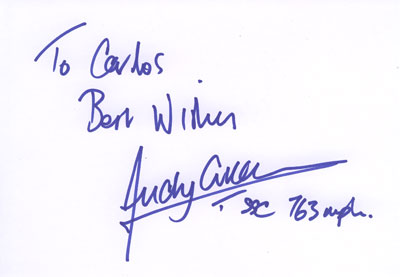 To Carlos
Best Wishes
Andy Green
T SSC 763 mph.